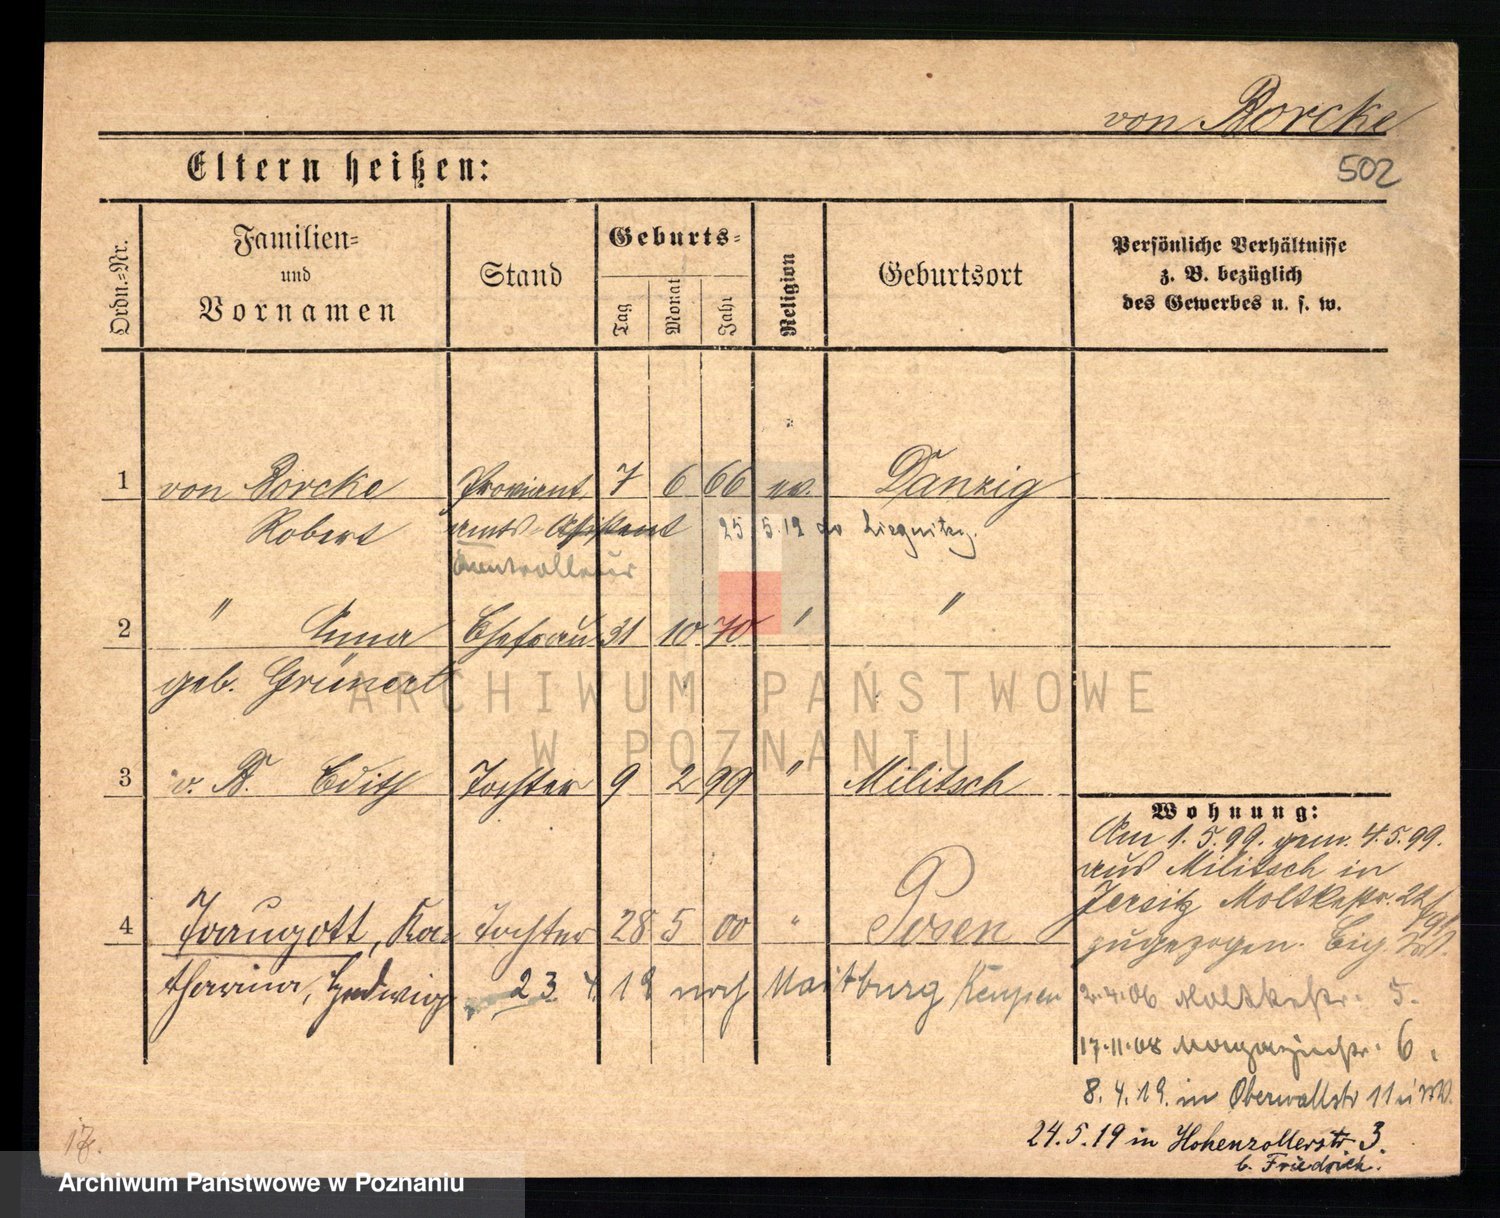 von Borcke
Eltern heißen:
502
Ordn.-Nr.
Familien-
und
Vornamen
Stand
Geburts-
Tag
Monat
Jahr
Religion
Geburtsort
Persönliche Verhältnisse
z. B. bezüglich
des Gewerbes u. s. w.
1 von Borcke Proviant 7 6 66 ev. Danzig
Robert amts-Assistent 25.5.19 Liegnitz.
Kontrolleur
2 " Anna Ehefrau 31 10 70 " "
geb. Grünert
ARCHIWUM PAŃSTWOWE
W POZNANIU
3 v. B. Edith Tochter 9 2 99 " Militsch
Wohnung:
Am 1.5.99. gem. 4.5.99.
aus Militsch in
Jersitz Moltkestr. 22
zugezogen.
4 Traugott, Ka- Tochter 28 5 00 " Posen
tharina, Hedwig 23 4. 19 nach Kempen
2.4.06 Moltkestr. 5.
17.11.08 Magazinstr. 6.
8.4.19. in Oberwallstr 11
24.5.19 in Hohenzollerstr 3.
b. Friedrich.
Archiwum Państwowe w Poznaniu